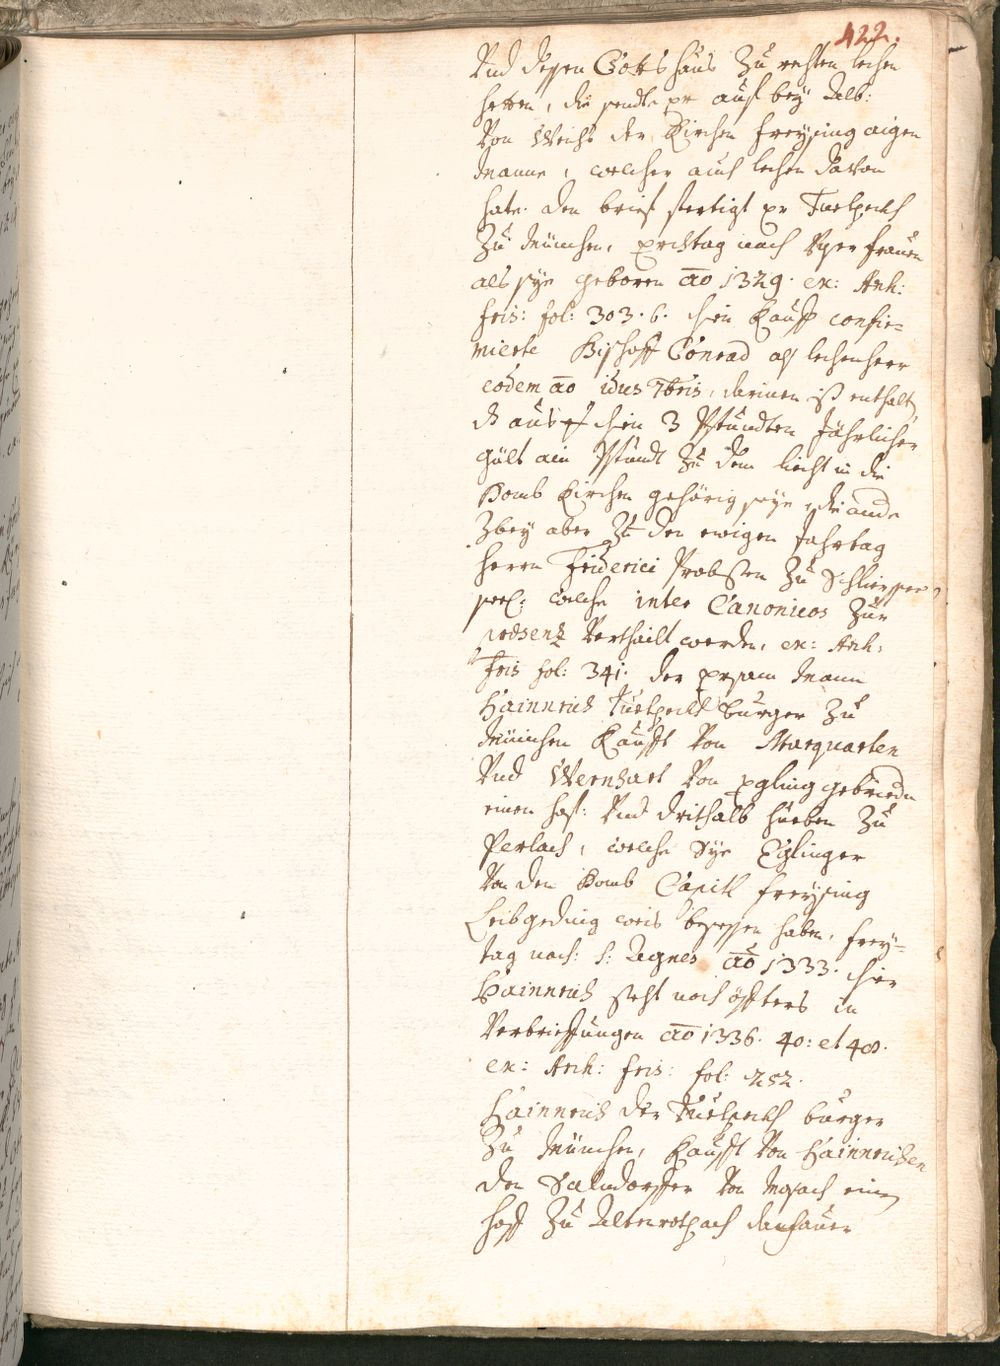 422.
Vnd dessen Gottshaus Zu rechten lechen
hetten, die sendte er auf bey Alb:
Von Weichs der Kirchen Freysing aigen
Manne, welcher auch lechen davon
hate. den brief fertigt er Tuelpeckh
Zu München, erchtag nach Vnser frauen
als sye geboren aõ 1329. ex: Arch:
fris: fol: 303.6. disen Kauff confir=
mierte Bischoff Conrad als lechenherr
eodem aõ idus 7bris, darinen ist enthalten
ds aus disen 3 Pfundten Jährlicher
gült ain Pfundt Zu dem liecht in die
Domb Kirchen gehörig seye, die andere
Zwey aber Zu den ewigen Jahrtag
herrn Friderici Probsten Zu Schliersee
seel: welche inter Canonicos Zur
præsenz Verthailt werden, ex: Arch:
Fris fol: 341. der ersam Mann
Hainnrich Tuelpeckh burger Zu
München Kaufft Von Marquarten
Vnd Wernhart Von Egling gebrüedern
einen hof: Vnd drithalb hueben Zu
Perlach, welche Sye Eglinger
Von dem Domb Capitl Freysing
Leibgeding weis besessen haben, frey=
tag nach: s: Agnes aõ 1333. diser
Hainnrich steht noch öffters in
Verbrieffungen aõ 1336. 40: et 48.
ex: Arch: fris: fol: 252.
Hainnrich der Tuelpeckh burger
Zu München, Kaufft Von Hainnrichen
den Salmdorffer Von Mosach einen
hoff Zu Altenrothpach